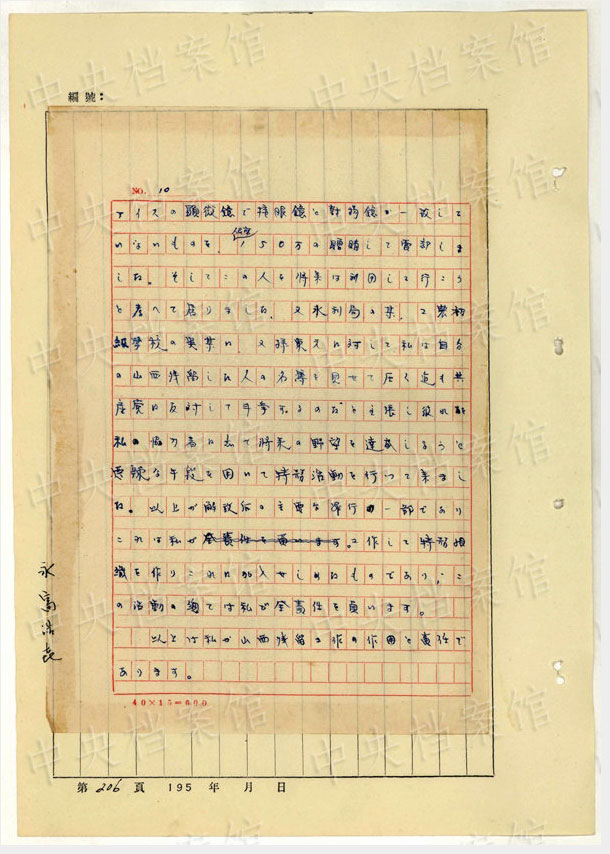 編號：
NO. 10
アイスの顕微鏡で接眼鏡と対物鏡が一致して
いないものを、偽空150万の贈賄して売却しま
した。そしてこの人を将来は利用して行こう
と考へて居りました。又水利局の某、工農初
級学校の某某に、又拝東光に対して私は自分
の山西残留した人の名簿を見せて圧く迄も共
産党に反対して斗争するのだと主張し彼れを
私の協力者にして将来の野望を達成しようと
悪辣な手段を用いて特務活動を行って来まし
た。以上が解放后の主要な罪行の一部であり
これは私が全責任を負います。工作して特務組
織を作りこれに加入せしめたものであり、こ
の活動の凡ては私が全責任を負います。
以上は私が山西残留工作の作用と責任で
あります。
40×15=600
永富浩喜
第206頁 195 年 月 日
中央档案馆